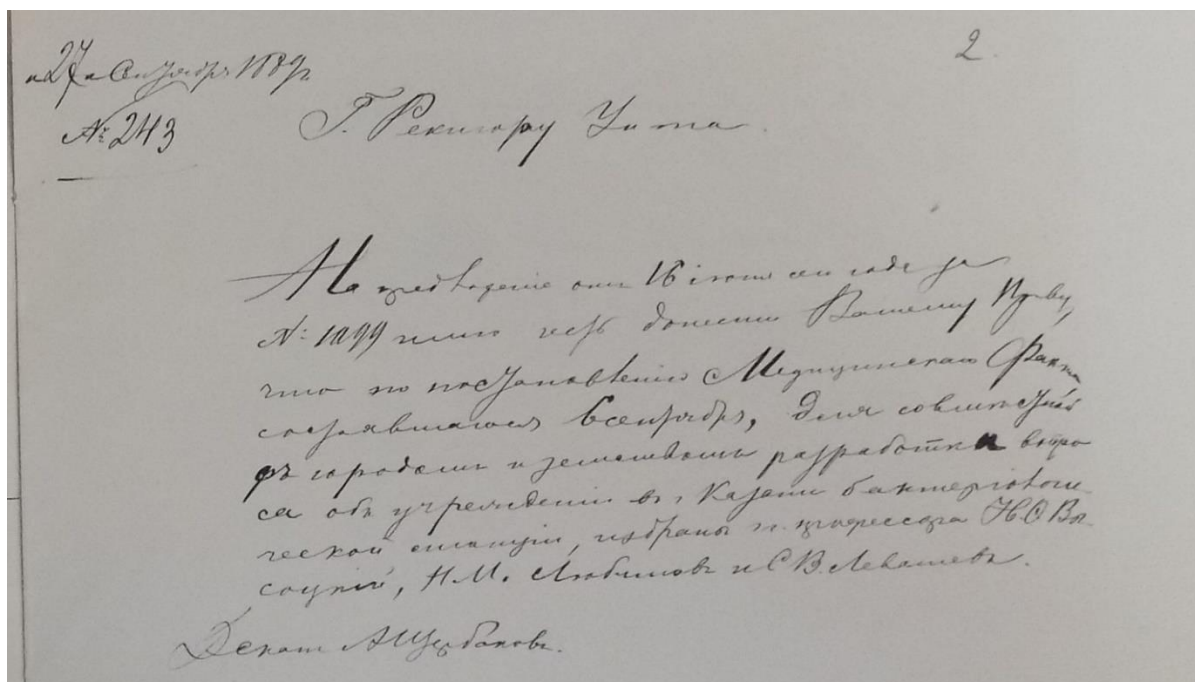 2.
"27" Сентября 1889 г.
№ 243
Г. Ректору Ун-та.
На предложение отъ 16 іюня сего года за
№ 1099 имѣю честь донести Вашему Прев-ву,
что по постановленію Медицинскаго Факта
состоявшагося 6 сентября, для совместной
съ городомъ и земствомъ разработки вопро
са объ учрежденіи въ г. Казани бактеріологи
ческой станціи, избраны гг. профессора Н.Ѳ. Вы
соцкій, Н.М. Любимовъ и С.В. Левашевъ.
Деканъ А Щербаковъ.